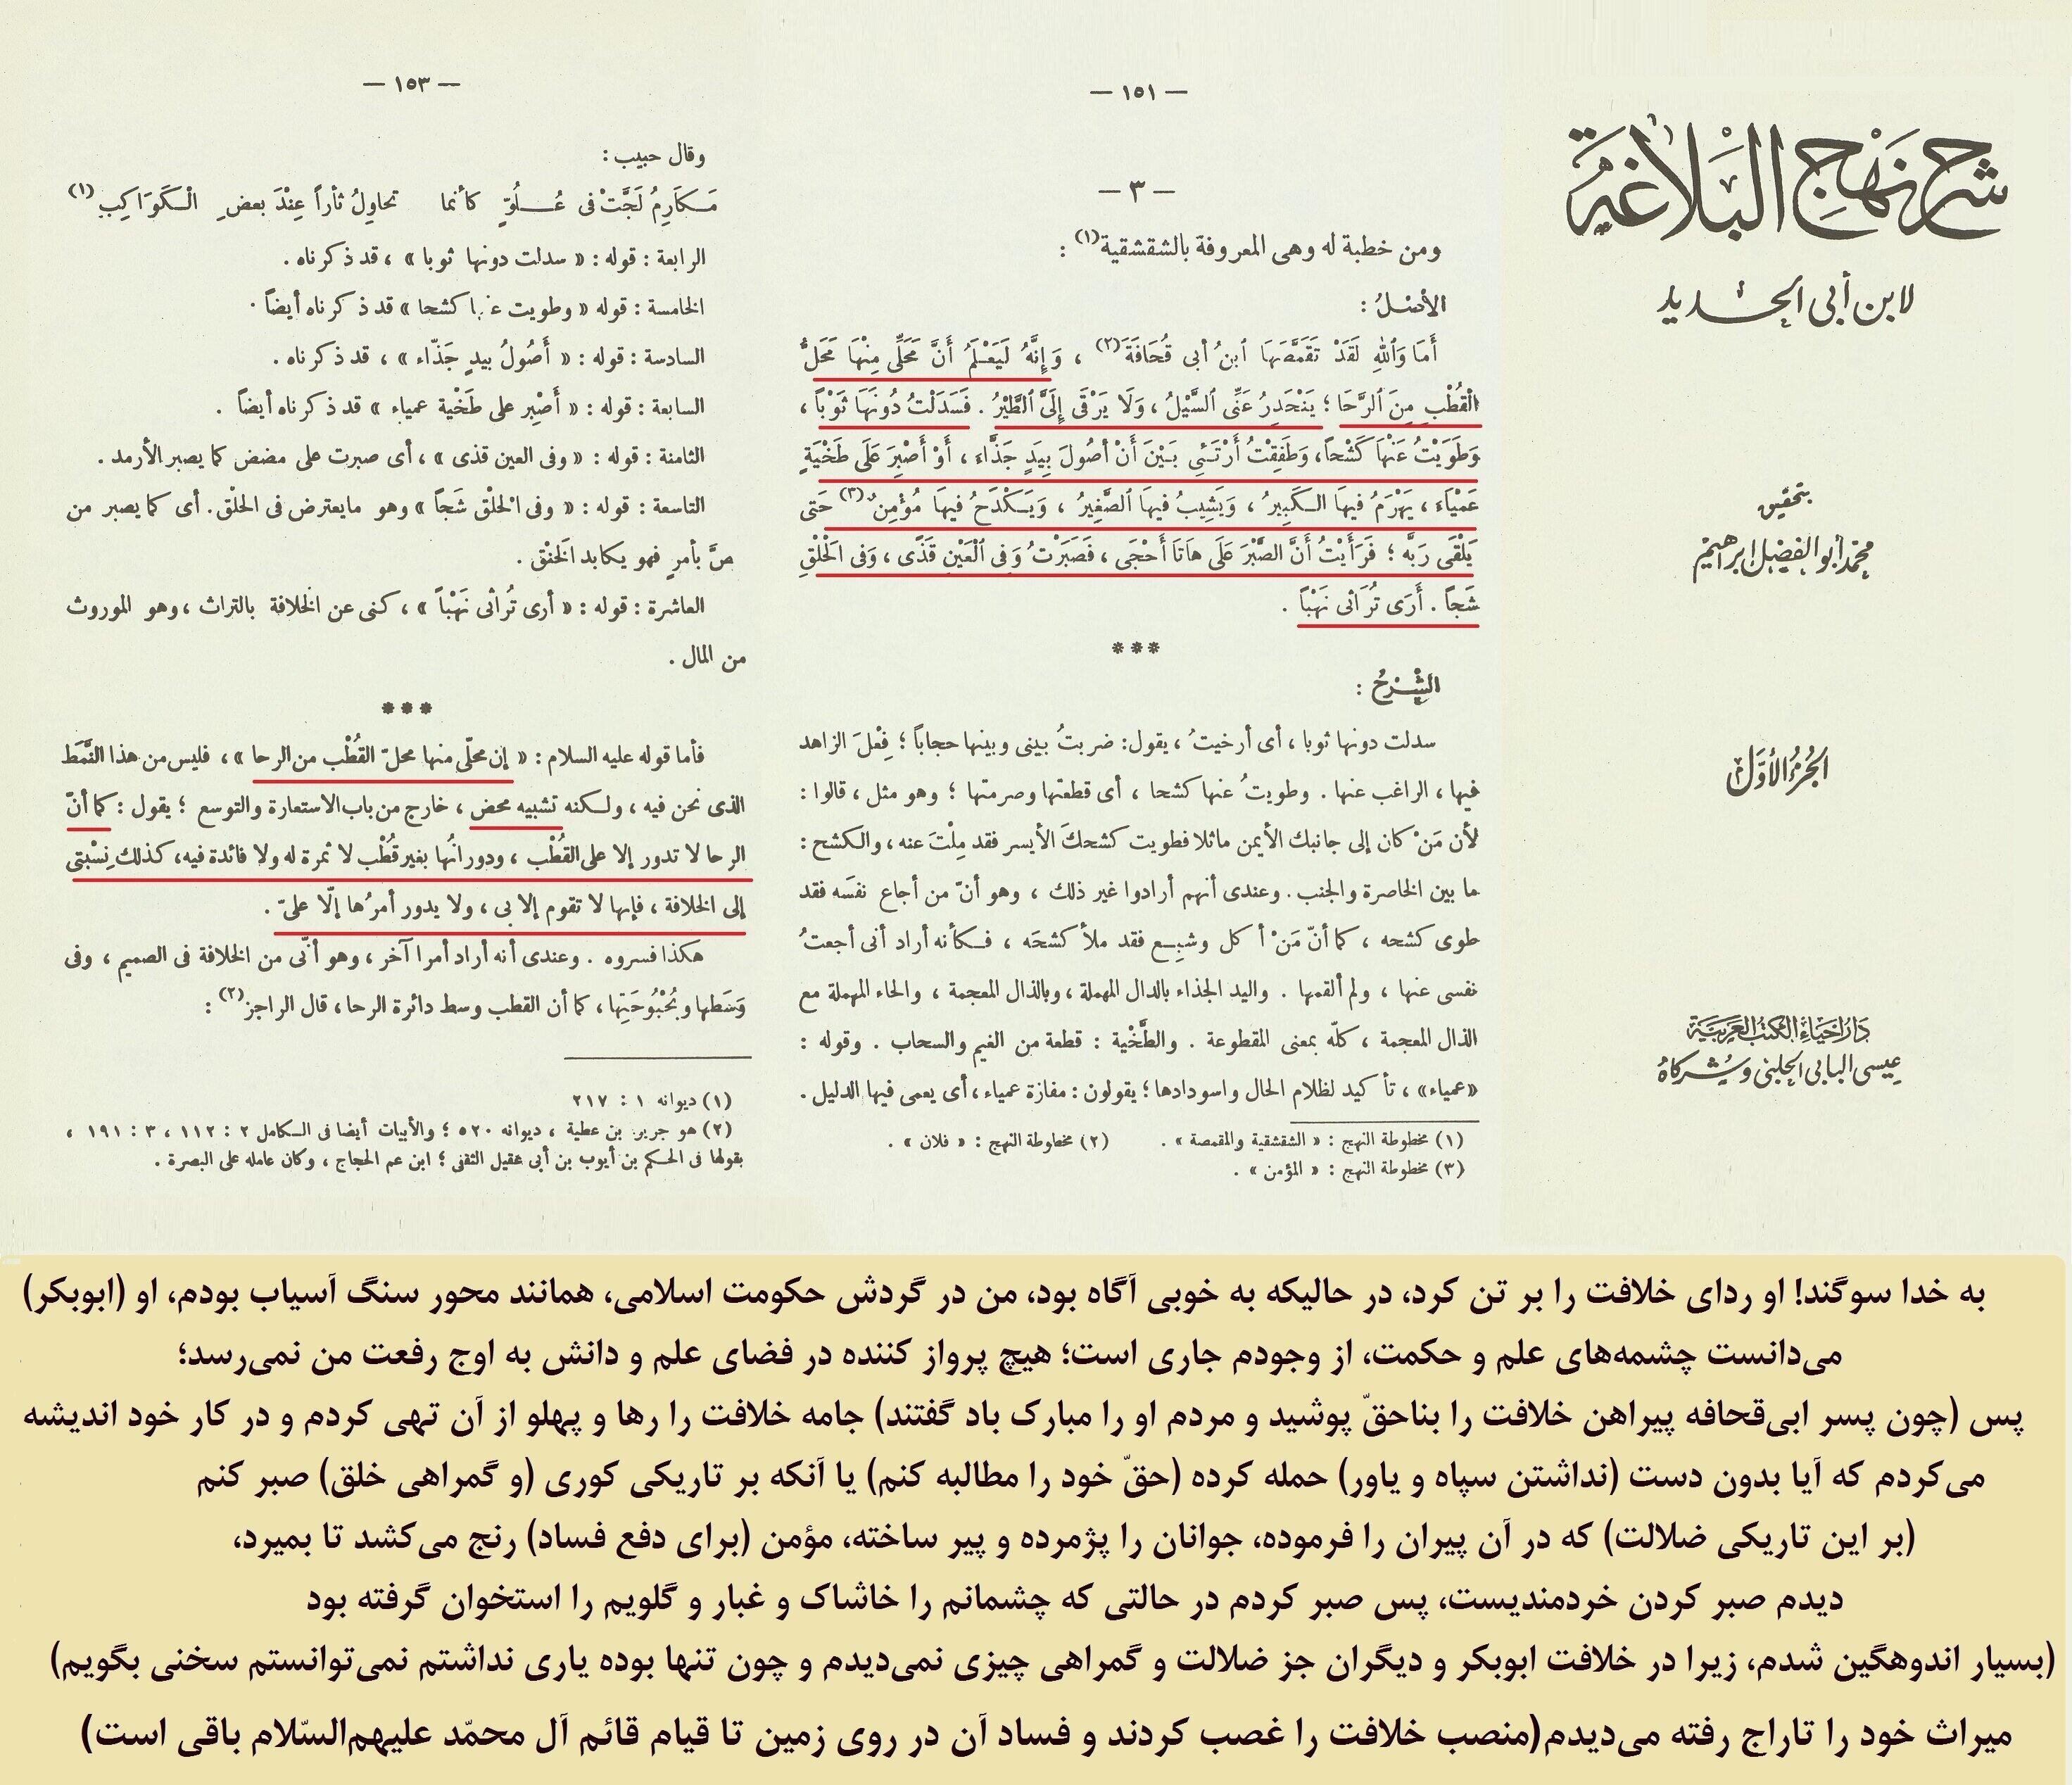 شرح نهج البلاغة
لابن أبى الحديد
بتحقيق
محمد أبو الفضل إبراهيم
الجزء الأول
دار إحياء الكتب العربية
عيسى البابى الحلبى وشركاه
— ١٥١ —
— ٣ —
ومن خطبة له وهى المعروفة بالشقشقية(١) :
الأصْلُ :
أَمَا وَٱللهِ لَقَدْ تَقَمَّصَهَا ٱبنُ أبى قُحَافَةَ(٢) ، وَإِنَّهُ لَيَعْلَمُ أَنَّ مَحَلِّى مِنْهَا مَحَلُّ
الْقُطْبِ مِنَ ٱلرَّحَا ؛ يَنْحَدِرُ عَنِّى ٱلسَّيْلُ ، وَلَا يَرْقَى إِلَىَّ ٱلطَّيْرُ . فَسَدَلْتُ دُونَهَا ثَوْبًا ،
وَطَوَيْتُ عَنْهَا كَشْحًا، وَطَفِقْتُ أَرْتَئِى بَيْنَ أَنْ أَصُولَ بِيَدٍ جَذَّاءَ ، أَوْ أَصْبِرَ عَلَى طَخْيَةٍ
عَمْيَاءَ ، يَهْرَمُ فيهَا الكَبِيرُ ، وَيَشِيبُ فيهَا ٱلصَّغِيرُ ، وَيَكْدَحُ فيهَا مُؤْمِنٌ(٣) حَتى
يَلْقَى رَبَّه ؛ فَرَأَيْتُ أَنَّ الصَّبْرَ عَلَى هَاتَا أَحْجَى ، فَصَبَرْتُ وَفِى ٱلْعَيْنِ قَذًى ، وَفى الْحَلْقِ
شَجًا . أَرَى تُرَاثى نَهْبًا .
***
الشَّرْحُ :
سدلت دونها ثوبا ، أى أرخيتُ ، يقول: ضربتُ بينى وبينها حجاباً ؛ فِعْلَ الزاهد
فيها ، الراغب عنها . وطويتُ عنها كشحا ، أى قطعتها وصرمتها ؛ وهو مثل ، قالوا :
لأن مَنْ كان إلى جانبك الأيمن ماثلا فطويت كشحكَ الأيسر فقد مِلْتَ عنه ، والكشح :
ما بين الخاصرة والجنب . وعندى أنهم أرادوا غير ذلك ، وهو أنّ من أجاع نفسَه فقد
طوى كشحه ، كما أنّ مَنْ أكل وشبِع فقد ملأ كشحَه ، فكأنه أراد أنى أجعتُ
نفسى عنها ، ولم ألقمها . واليد الجذاء بالدال المهملة ، وبالذال المعجمة ، والحاء المهملة مع
الذال المعجمة ، كلّه بمعنى المقطوعة . والطَّخْية : قطعة من الغيم والسحاب . وقوله :
«عمياء» ، تأكيد لظلام الحال واسودادها ؛ يقولون : مفازة عمياء ، أى يعمى فيها الدليل .
(١) مخطوطة النهج : « الشقشقية والمقمصة » . (٢) مخطوطة النهج : « فلان » .
(٣) مخطوطة النهج : « المؤمن » .
— ١٥٣ —
وقال حبيب :
مَكَارِمُ لَجَّتْ فى عُلُوٍّ كأنما تحاوِلُ ثأراً عِنْدَ بعضِ الْكَوَاكِبِ(١)
الرابعة : قوله : « سدلت دونها ثوبا » ، قد ذكرناه .
الخامسة : قوله « وطويت عنها كشحا » قد ذكرناه أيضاً .
السادسة : قوله : « أَصُولُ بيدٍ جَذّاء » ، قد ذكرناه .
السابعة : قوله : « أصْبِر على طَخْية عمياء » قد ذكرناه أيضاً .
الثامنة : قوله : « وفى العين قذى » ، أى صبرت على مضض كما يصبر الأرمد .
التاسعة : قوله : « وفى الحلْق شَجًا » وهو مايعترض فى الحلْق . أى كما يصبر من
غصَّ بأمرٍ فهو يكابد الخنْق .
العاشرة : قوله : « أرى تُراثى نَهْباً » ، كنى عن الخلافة بالتراث ، وهو الموروث
من المال .
***
فأما قوله عليه السلام : « إن محلّى منها محلّ القُطْب من الرحا » ، فليس من هذا النَّمَط
الذى نحن فيه ، ولكنه تشبيه محض ، خارج من باب الاستعارة والتوسع ؛ يقول : كما أنّ
الرحا لا تدور إلا على القُطْب ، ودورانُها بغير قُطْب لا ثمرة له ولا فائدة فيه، كذلك نِسْبتى
إلى الخلافة ، فإنها لا تقوم إلا بى ، ولا يدور أمرُها إلّا علىّ .
هكذا فسروه . وعندى أنه أراد أمرا آخر ، وهو أنّى من الخلافة فى الصميم ، وفى
وَسَطها وبُحْبُوحَتِها ، كما أن القطب وسط دائرة الرحا، قال الراجز(٢) :
(١) ديوانه ١ : ٢١٧
(٢) هو جرير بن عطية ، ديوانه ٥٢٠ ؛ والأبيات أيضا فى الكامل ٢ : ١١٢ ، ٣ : ١٩١ ،
يقولها فى الحكم بن أيوب بن أبى عقيل الثقفى ؛ ابن عم الحجاج ، وكان عامله على البصرة .
به خدا سوگند! او ردای خلافت را بر تن کرد، در حالیکه به خوبی آگاه بود، من در گردش حکومت اسلامی، همانند محور سنگ آسیاب بودم، او (ابوبکر)
می‌دانست چشمه‌های علم و حکمت، از وجودم جاری است؛ هیچ پرواز کننده در فضای علم و دانش به اوج رفعت من نمی‌رسد؛
پس (چون پسر ابی‌قحافه پیراهن خلافت را بناحقّ پوشید و مردم او را مبارک باد گفتند) جامه خلافت را رها و پهلو از آن تهی کردم و در کار خود اندیشه
می‌کردم که آیا بدون دست (نداشتن سپاه و یاور) حمله کرده (حقّ خود را مطالبه کنم) یا آنکه بر تاریکی کوری (و گمراهی خلق) صبر کنم
(بر این تاریکی ضلالت) که در آن پیران را فرموده، جوانان را پژمرده و پیر ساخته، مؤمن (برای دفع فساد) رنج می‌کشد تا بمیرد،
دیدم صبر کردن خردمندیست، پس صبر کردم در حالتی که چشمانم را خاشاک و غبار و گلویم را استخوان گرفته بود
(بسیار اندوهگین شدم، زیرا در خلافت ابوبکر و دیگران جز ضلالت و گمراهی چیزی نمی‌دیدم و چون تنها بوده یاری نداشتم نمی‌توانستم سخنی بگویم)
میراث خود را تاراج رفته می‌دیدم(منصب خلافت را غصب کردند و فساد آن در روی زمین تا قیام قائم آل محمّد علیهم‌السّلام باقی است)